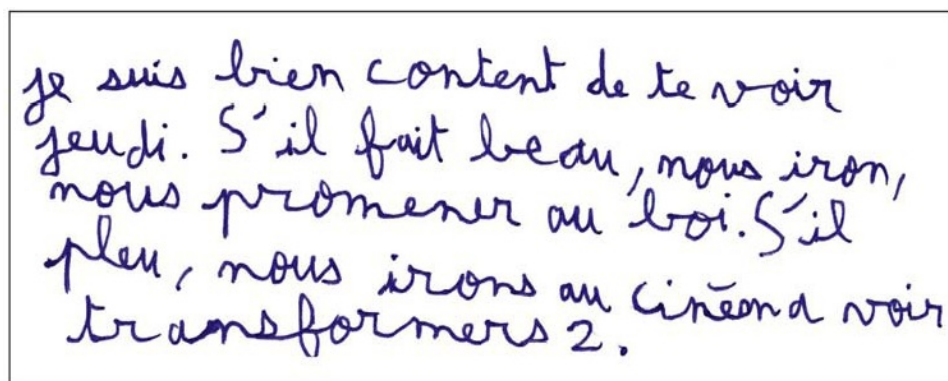 je suis bien content de te voir
jeudi. S'il fait beau, nous iron,
nous promener au boi. S'il
pleu, nous irons au cinéona voir
transformers 2.